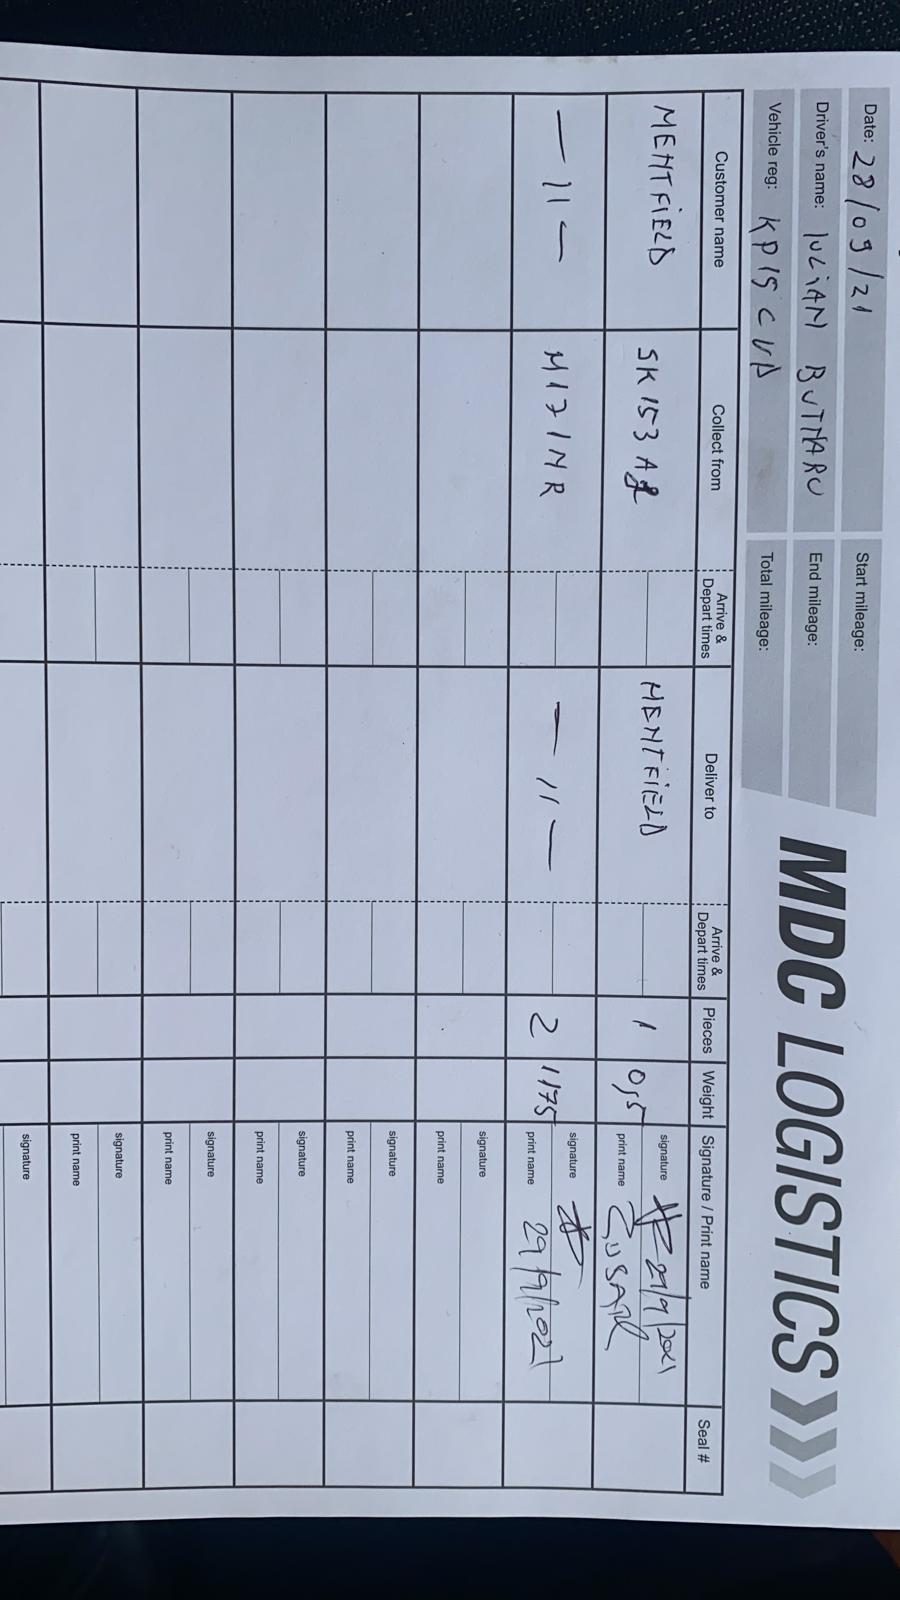 Date: 28/09/21
Start mileage:
Driver's name: IULIAN BUTNARU
End mileage:
Vehicle reg: KP15 CVA
Total mileage:
MDC LOGISTICS
Customer name Collect from Arrive & Depart times Deliver to Arrive & Depart times Pieces Weight Signature / Print name Seal #
MENTFIELD SK153A MENTFIELD 1 0,5 signature 29/9/2021
print name
— 11 — M171NR — 11 — 2 1175 signature
print name 29/9/2021
signature
print name
signature
print name
signature
print name
signature
print name
signature
print name
signature